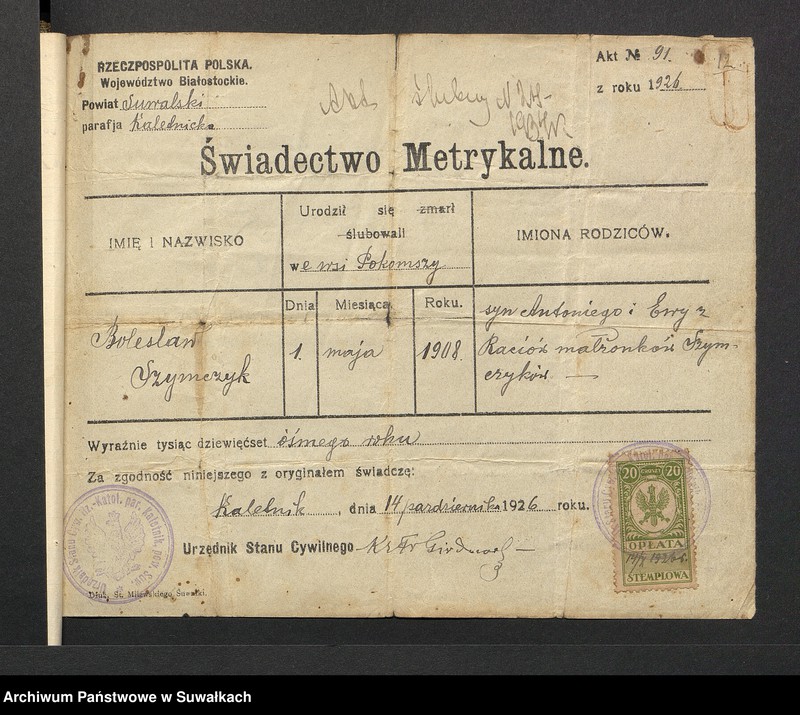 RZECZPOSPOLITA POLSKA.
Województwo Białostockie.
Powiat Suwalski
parafja Kalednicka
Akt № 91.
z roku 1926
Akt Ślubny N 24-
Świadectwo Metrykalne.
IMIĘ I NAZWISKO
Urodził się zmarł
ślubowali
we wsi Pokomszy
IMIONA RODZICÓW.
Dnia Miesiąca Roku.
Bolesław
Szymczyk
1. maja 1908.
syn Antoniego i Ewy z
Raciów małżonków Szym-
czyków. —
Wyraźnie tysiąc dziewięćset ósmego roku
Za zgodność niniejszego z oryginałem świadczę:
Kaletnik, dnia 14 października 1926 roku.
Urzędnik Stanu Cywilnego Ks Fr
20 GROSZY 20
OPŁATA
14/X 1926 r.
STEMPLOWA
Urzędnik Stanu Cyw. rz.-Katol. par. Kaletnik, pow. Suw.
Druk. St. Milewskiego Suwałki.
Archiwum Państwowe w Suwałkach